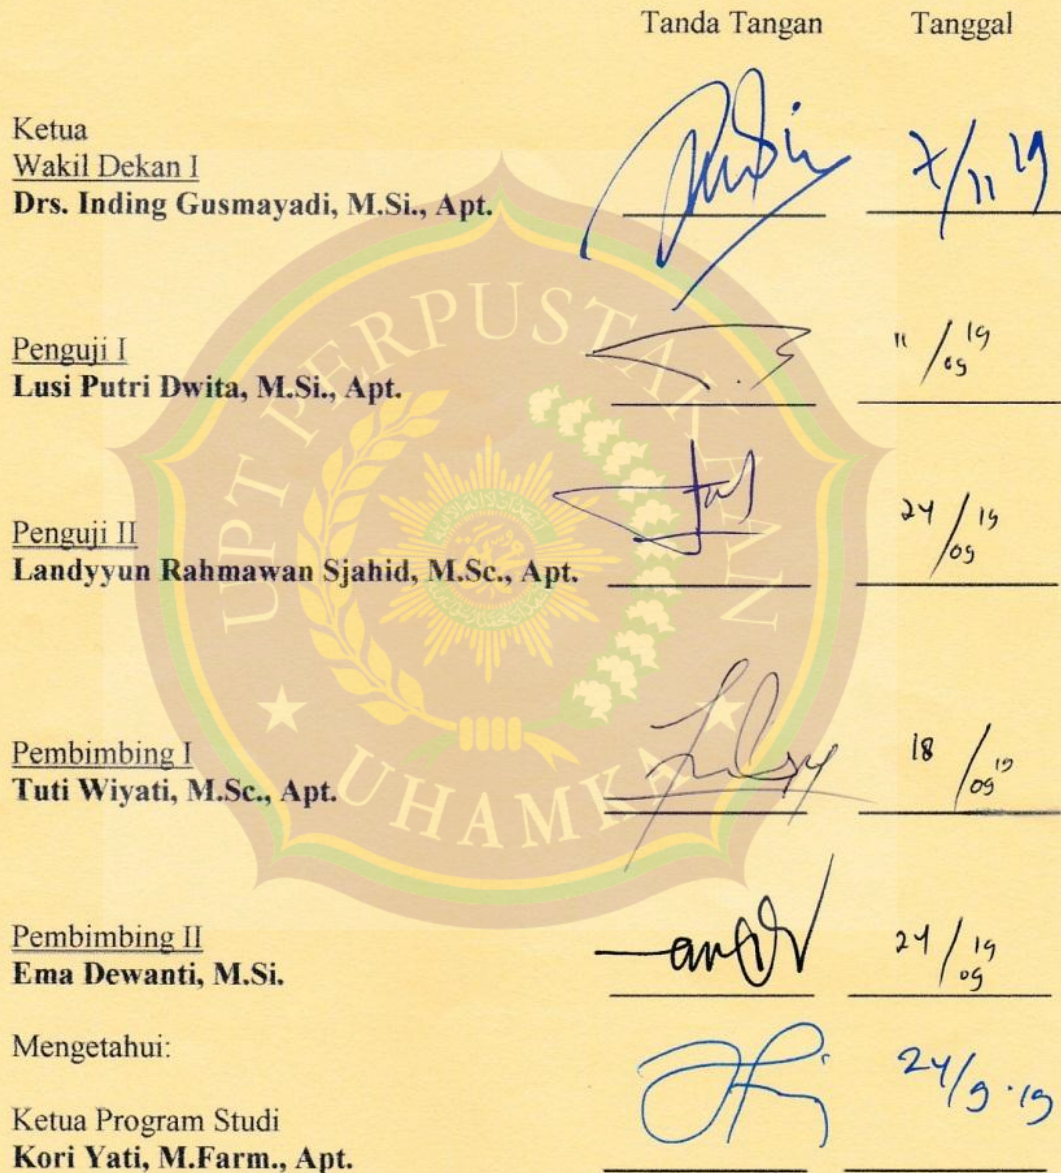 Tanda Tangan Tanggal
Ketua
Wakil Dekan I
Drs. Inding Gusmayadi, M.Si., Apt.
7/11 19
Penguji I
Lusi Putri Dwita, M.Si., Apt.
11/09 19
Penguji II
Landyyun Rahmawan Sjahid, M.Sc., Apt.
24/09 19
Pembimbing I
Tuti Wiyati, M.Sc., Apt.
18/09 19
Pembimbing II
Ema Dewanti, M.Si.
24/09 19
Mengetahui:
24/9.19
Ketua Program Studi
Kori Yati, M.Farm., Apt.
UPT PERPUSTAKAAN
UHAMKA